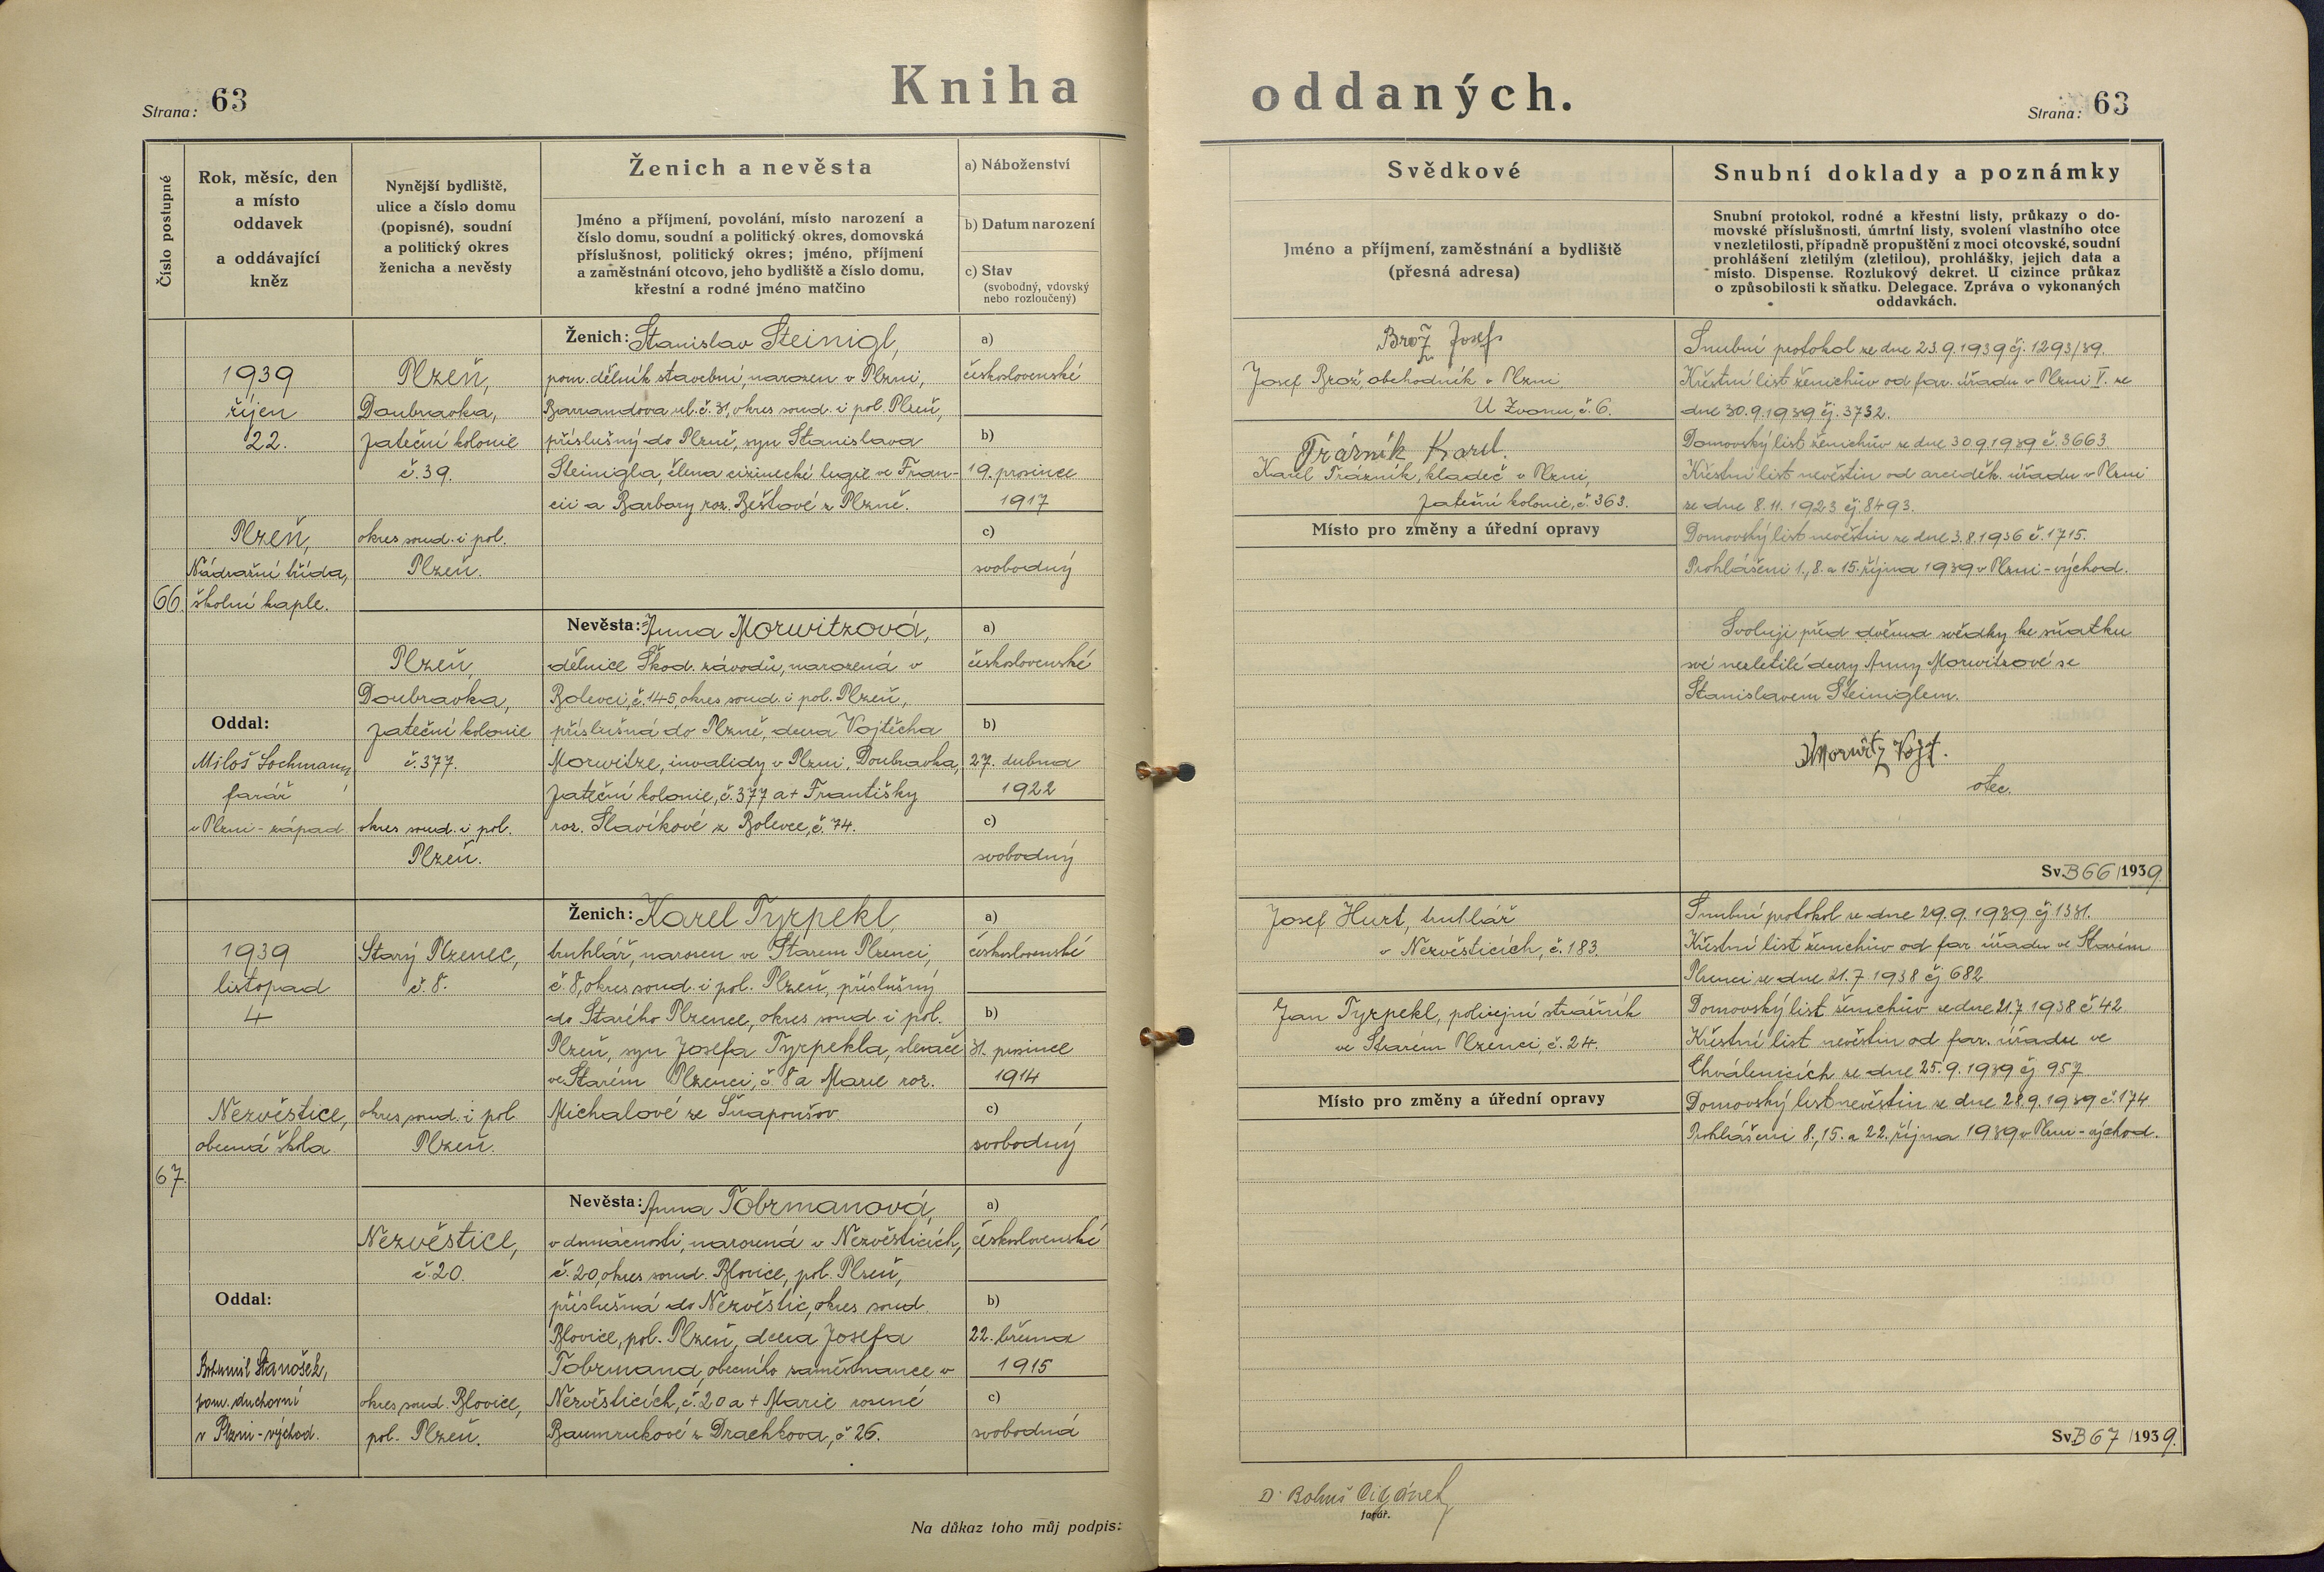 Strana: 63
Kniha
Číslo postupné
Rok, měsíc, den
a místo
oddavek
a oddávající
kněz
Nynější bydliště,
ulice a číslo domu
(popisné), soudní
a politický okres
ženicha a nevěsty
Ženich a nevěsta
Jméno a příjmení, povolání, místo narození a
číslo domu, soudní a politický okres, domovská
příslušnost, politický okres; jméno, příjmení
a zaměstnání otcovo, jeho bydliště a číslo domu,
křestní a rodné jméno matčino
a) Náboženství
b) Datum narození
c) Stav
(svobodný, vdovský
nebo rozloučený)
66.
1939
říjen
22.
Plzeň,
Nádražní třída,
školní kaple.
Oddal:
Miloš Lochmann,
farář
v Plzni - západ.
Plzeň,
Doubravka,
Jateční kolonie
č. 39.
okres soud. i pol.
Plzeň.
Plzeň,
Doubravka,
Jateční kolonie
č. 377.
okres soud. i pol.
Plzeň.
Ženich: Stanislav Steinigl,
pom. dělník stavební, narozen v Plzni,
Barrandova ul. č. 31, okres soud. i pol. Plzeň,
příslušný do Plzně, syn Stanislava
Steinigla, člena cizinecké legie ve Fran-
cii a Barbory roz. Bešťové z Plzně.
Nevěsta: Anna Morwitzová,
dělnice Škod. závodů, narozená v
Bolevci, č. 145, okres soud. i pol. Plzeň,
příslušná do Plzně, dcera Vojtěcha
Morwitze, invalidy v Plzni, Doubravka,
Jateční kolonie, č. 377 a + Františky
roz. Slavíkové z Bolevce, č. 74.
a)
československé
b)
19. prosince
1917
c)
svobodný
a)
československé
b)
27. dubna
1922
c)
svobodný
67.
1939
listopad
4
Nezvěstice,
obecná škola.
Oddal:
Bohumil Stanošek,
pom. duchovní
v Plzni - východ.
Starý Plzenec,
č. 8.
okres soud. i pol
Plzeň.
Nezvěstice,
č. 20.
okres soud. Blovice,
pol. Plzeň.
Ženich: Karel Tyrpekl,
truhlář, narozen ve Starem Plzenci,
č. 8, okres soud. i pol. Plzeň, příslušný
do Starého Plzence, okres soud. i pol.
Plzeň, syn Josefa Tyrpekla, slevače
ve Starém Plzenci, č. 8 a Marie roz.
Michalové ze Šťapoušov
Nevěsta: Anna Tobrmanová,
v domácnosti, narozená v Nezvěsticích,
č. 20, okres soud. Blovice, pol. Plzeň,
příslušná do Nezvěstic, okres soud.
Blovice, pol. Plzeň, dcera Josefa
Tobrmana, obecního zaměstnance v
Nezvěsticích, č. 20 a + Marie rozené
Baumrukové z Drachkova, č 26.
a)
československé
b)
31. prosince
1914
c)
svobodný
a)
československé
b)
22. března
1915
c)
svobodná
Na důkaz toho můj podpis:
oddaných.
Strana: 63
Svědkové
Jméno a příjmení, zaměstnání a bydliště
(přesná adresa)
Snubní doklady a poznámky
Snubní protokol, rodné a křestní listy, průkazy o do-
movské příslušnosti, úmrtní listy, svolení vlastního otce
v nezletilosti, případně propuštění z moci otcovské, soudní
prohlášení zletilým (zletilou), prohlášky, jejich data a
místo. Dispense. Rozlukový dekret. U cizince průkaz
o způsobilosti k sňatku. Delegace. Zpráva o vykonaných
oddavkách.
Brož Josef
Josef Brož obchodník v Plzni
U Zvonu, č. 6.
Trázník Karel.
Karel Trázník, kladeč v Plzni,
Jateční kolonie, č. 363.
Místo pro změny a úřední opravy
Snubní protokol ze dne 23.9.1939 čj. 1293/39.
Křestní list ženichův od far. úřadu v Plzni V. ze
dne 30.9.1939 čj. 3732.
Domovský list ženichův ze dne 30.9.1939 č. 3663
Křestní list nevěstin od arciděk. úřadu v Plzni
ze dne 8.11.1923 čj. 8493.
Domovský list nevěstin ze dne 3.8.1936 č. 1715.
Prohlášeni 1., 8. a 15. října 1939 v Plzni - východ.
Svoluji před dvěma svědky ke sňatku
své nezletilé dcery Anny Morwitzové se
Stanislavem Steiniglem.
Morwitz Vojt.
otec.
Sv. B 66/1939.
Josef Hurt, truhlář
v Nezvěsticích, č. 183.
Jan Tyrpekl, policejní strážník
ve Starém Plzenci, č. 24.
Místo pro změny a úřední opravy
Snubní protokol ze dne 29.9.1939 čj 1331.
Křestní list ženichův od far. úřadu ve Starém
Plzenci ze dne 21.7.1938 čj 682
Domovský list ženichův ze dne 21.7.1938 č 42
Křestní list nevěstin od far. úřadu ve
Chválenicích ze dne 25.9.1939 čj 957
Domovský list nevěstin ze dne 28.9.1939 č. 174
Prohlášeni 8., 15. a 22. října 1939 v Plzni - východ.
Sv. B 67/1939.
Dr Bohuš Cigánek
farář.